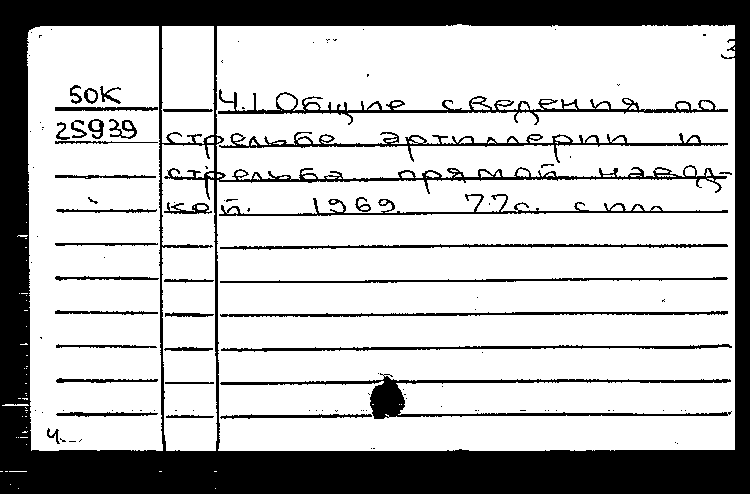 3
50К Ч.1. Общие сведения по
25939 стрельбе артиллерии и
стрельба прямой навод-
кой. 1969 77с. с илл
Ч...